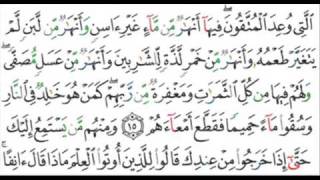 ٱلَّتِى وُعِدَ ٱلْمُتَّقُونَ ۖ فِيهَآ أَنْهَٰرٌ مِّن مَّآءٍ غَيْرِ ءَاسِنٍ وَأَنْهَٰرٌ مِّن لَّبَنٍ لَّمْ
يَتَغَيَّرْ طَعْمُهُۥ وَأَنْهَٰرٌ مِّنْ خَمْرٍ لَّذَّةٍ لِّلشَّٰرِبِينَ وَأَنْهَٰرٌ مِّنْ عَسَلٍ مُّصَفًّى ۖ
وَلَهُمْ فِيهَا مِن كُلِّ ٱلثَّمَرَٰتِ وَمَغْفِرَةٌ مِّن رَّبِّهِمْ ۖ كَمَنْ هُوَ خَٰلِدٌ فِى ٱلنَّارِ
وَسُقُوا۟ مَآءً حَمِيمًا فَقَطَّعَ أَمْعَآءَهُمْ ١٥ وَمِنْهُم مَّن يَسْتَمِعُ إِلَيْكَ
حَتَّىٰٓ إِذَا خَرَجُوا۟ مِنْ عِندِكَ قَالُوا۟ لِلَّذِينَ أُوتُوا۟ ٱلْعِلْمَ مَاذَا قَالَ ءَانِفًا ۚ